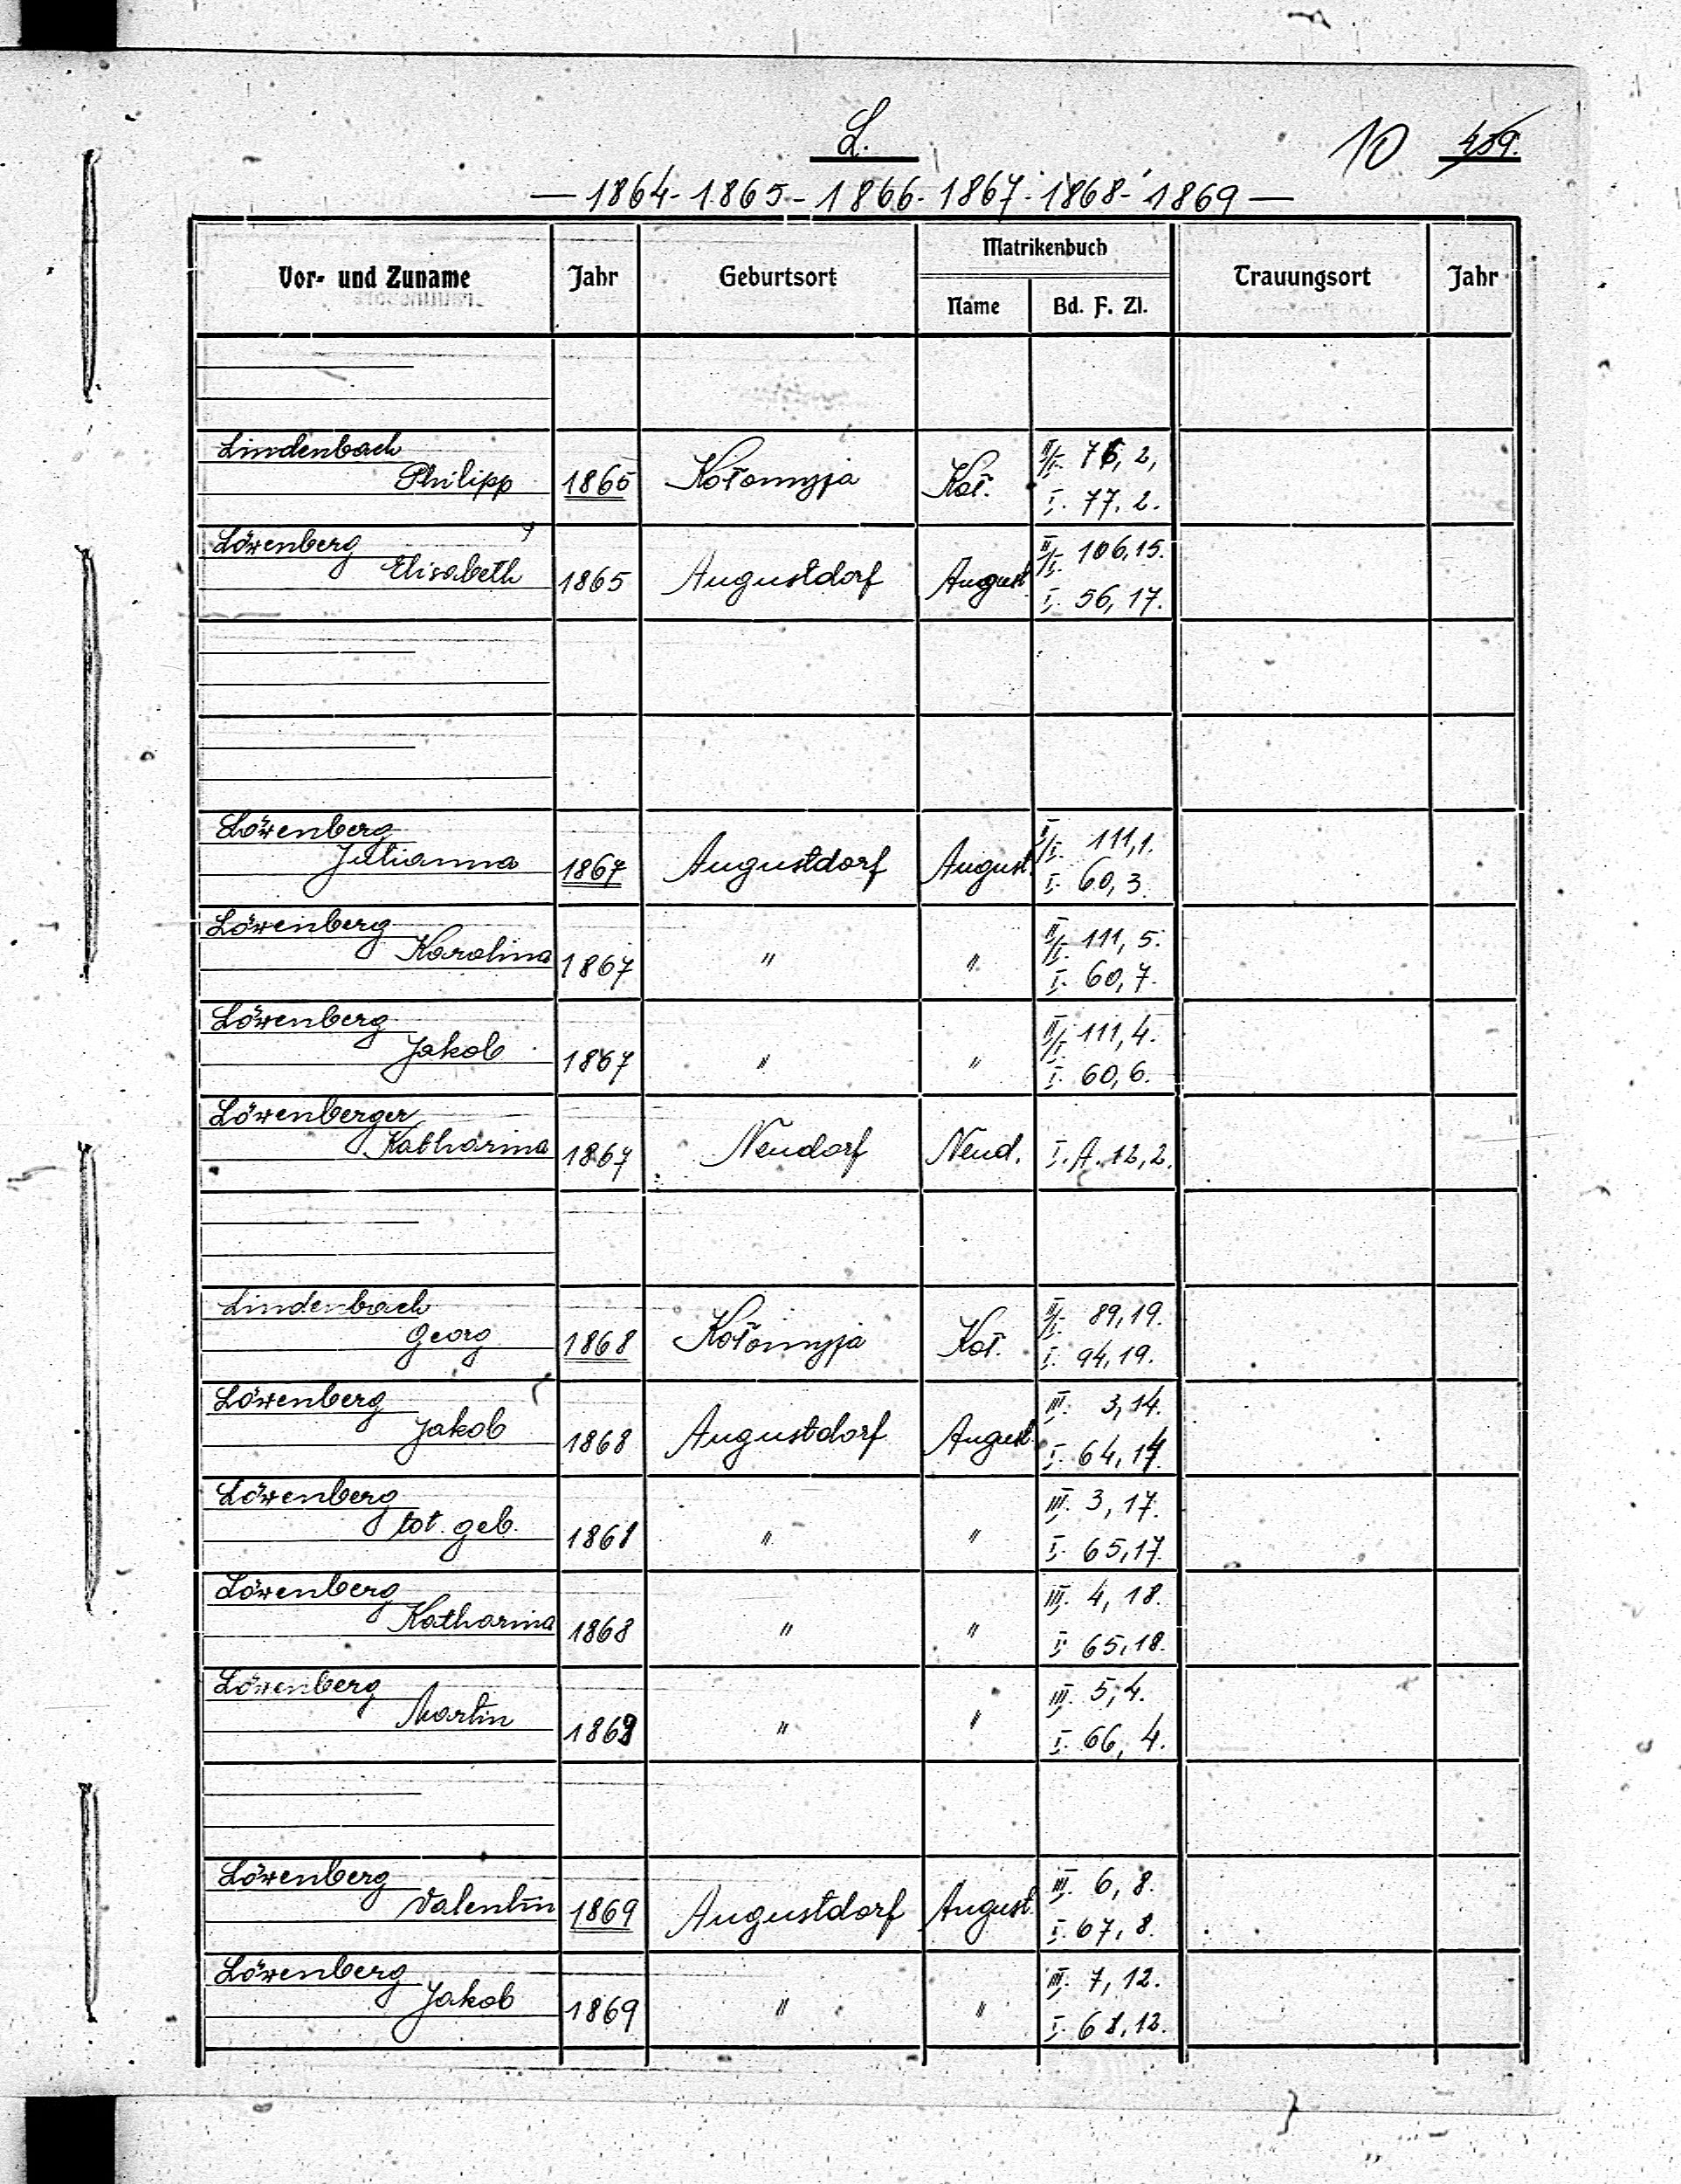 L.
10 459.
— 1864 - 1865 - 1866 - 1867 - 1868 - 1869 —
Vor- und Zuname Jahr Geburtsort Matrikenbuch Trauungsort Jahr
Name Bd. F. Zl.
Lindenbach II/I. 76, 2,
Philipp 1865 Kołomyja Koł. I. 77. 2.
Löwenberg II/I. 106, 15.
Elisabeth 1865 Augustdorf August. I. 56, 17.
Löwenberg II/I. 111, 1.
Julianna 1867 Augustdorf August. I. 60, 3.
Löwenberg II/I. 111, 5.
Karolina 1867 " " I. 60, 7.
Löwenberg II/I. 111, 4.
Jakob 1867 " " I. 60, 6.
Löwenberger
Katharina 1867 Neudorf Neud. I. A. 12, 2.
Lindenbach II/I. 89, 19.
Georg 1868 Kołomyja Koł. I. 94, 19.
Löwenberg III. 3, 14.
Jakob 1868 Augustdorf August. I. 64, 14.
Löwenberg III. 3, 17.
tot. geb. 1868 " " I. 65, 17.
Löwenberg III. 4, 18.
Katharina 1868 " " I. 65, 18.
Löwenberg III. 5, 4.
Martin 1869 " " I. 66, 4.
Löwenberg III. 6, 8.
Valentin 1869 Augustdorf August. I. 67, 8.
Löwenberg III. 7, 12.
Jakob 1869 " " I. 68, 12.